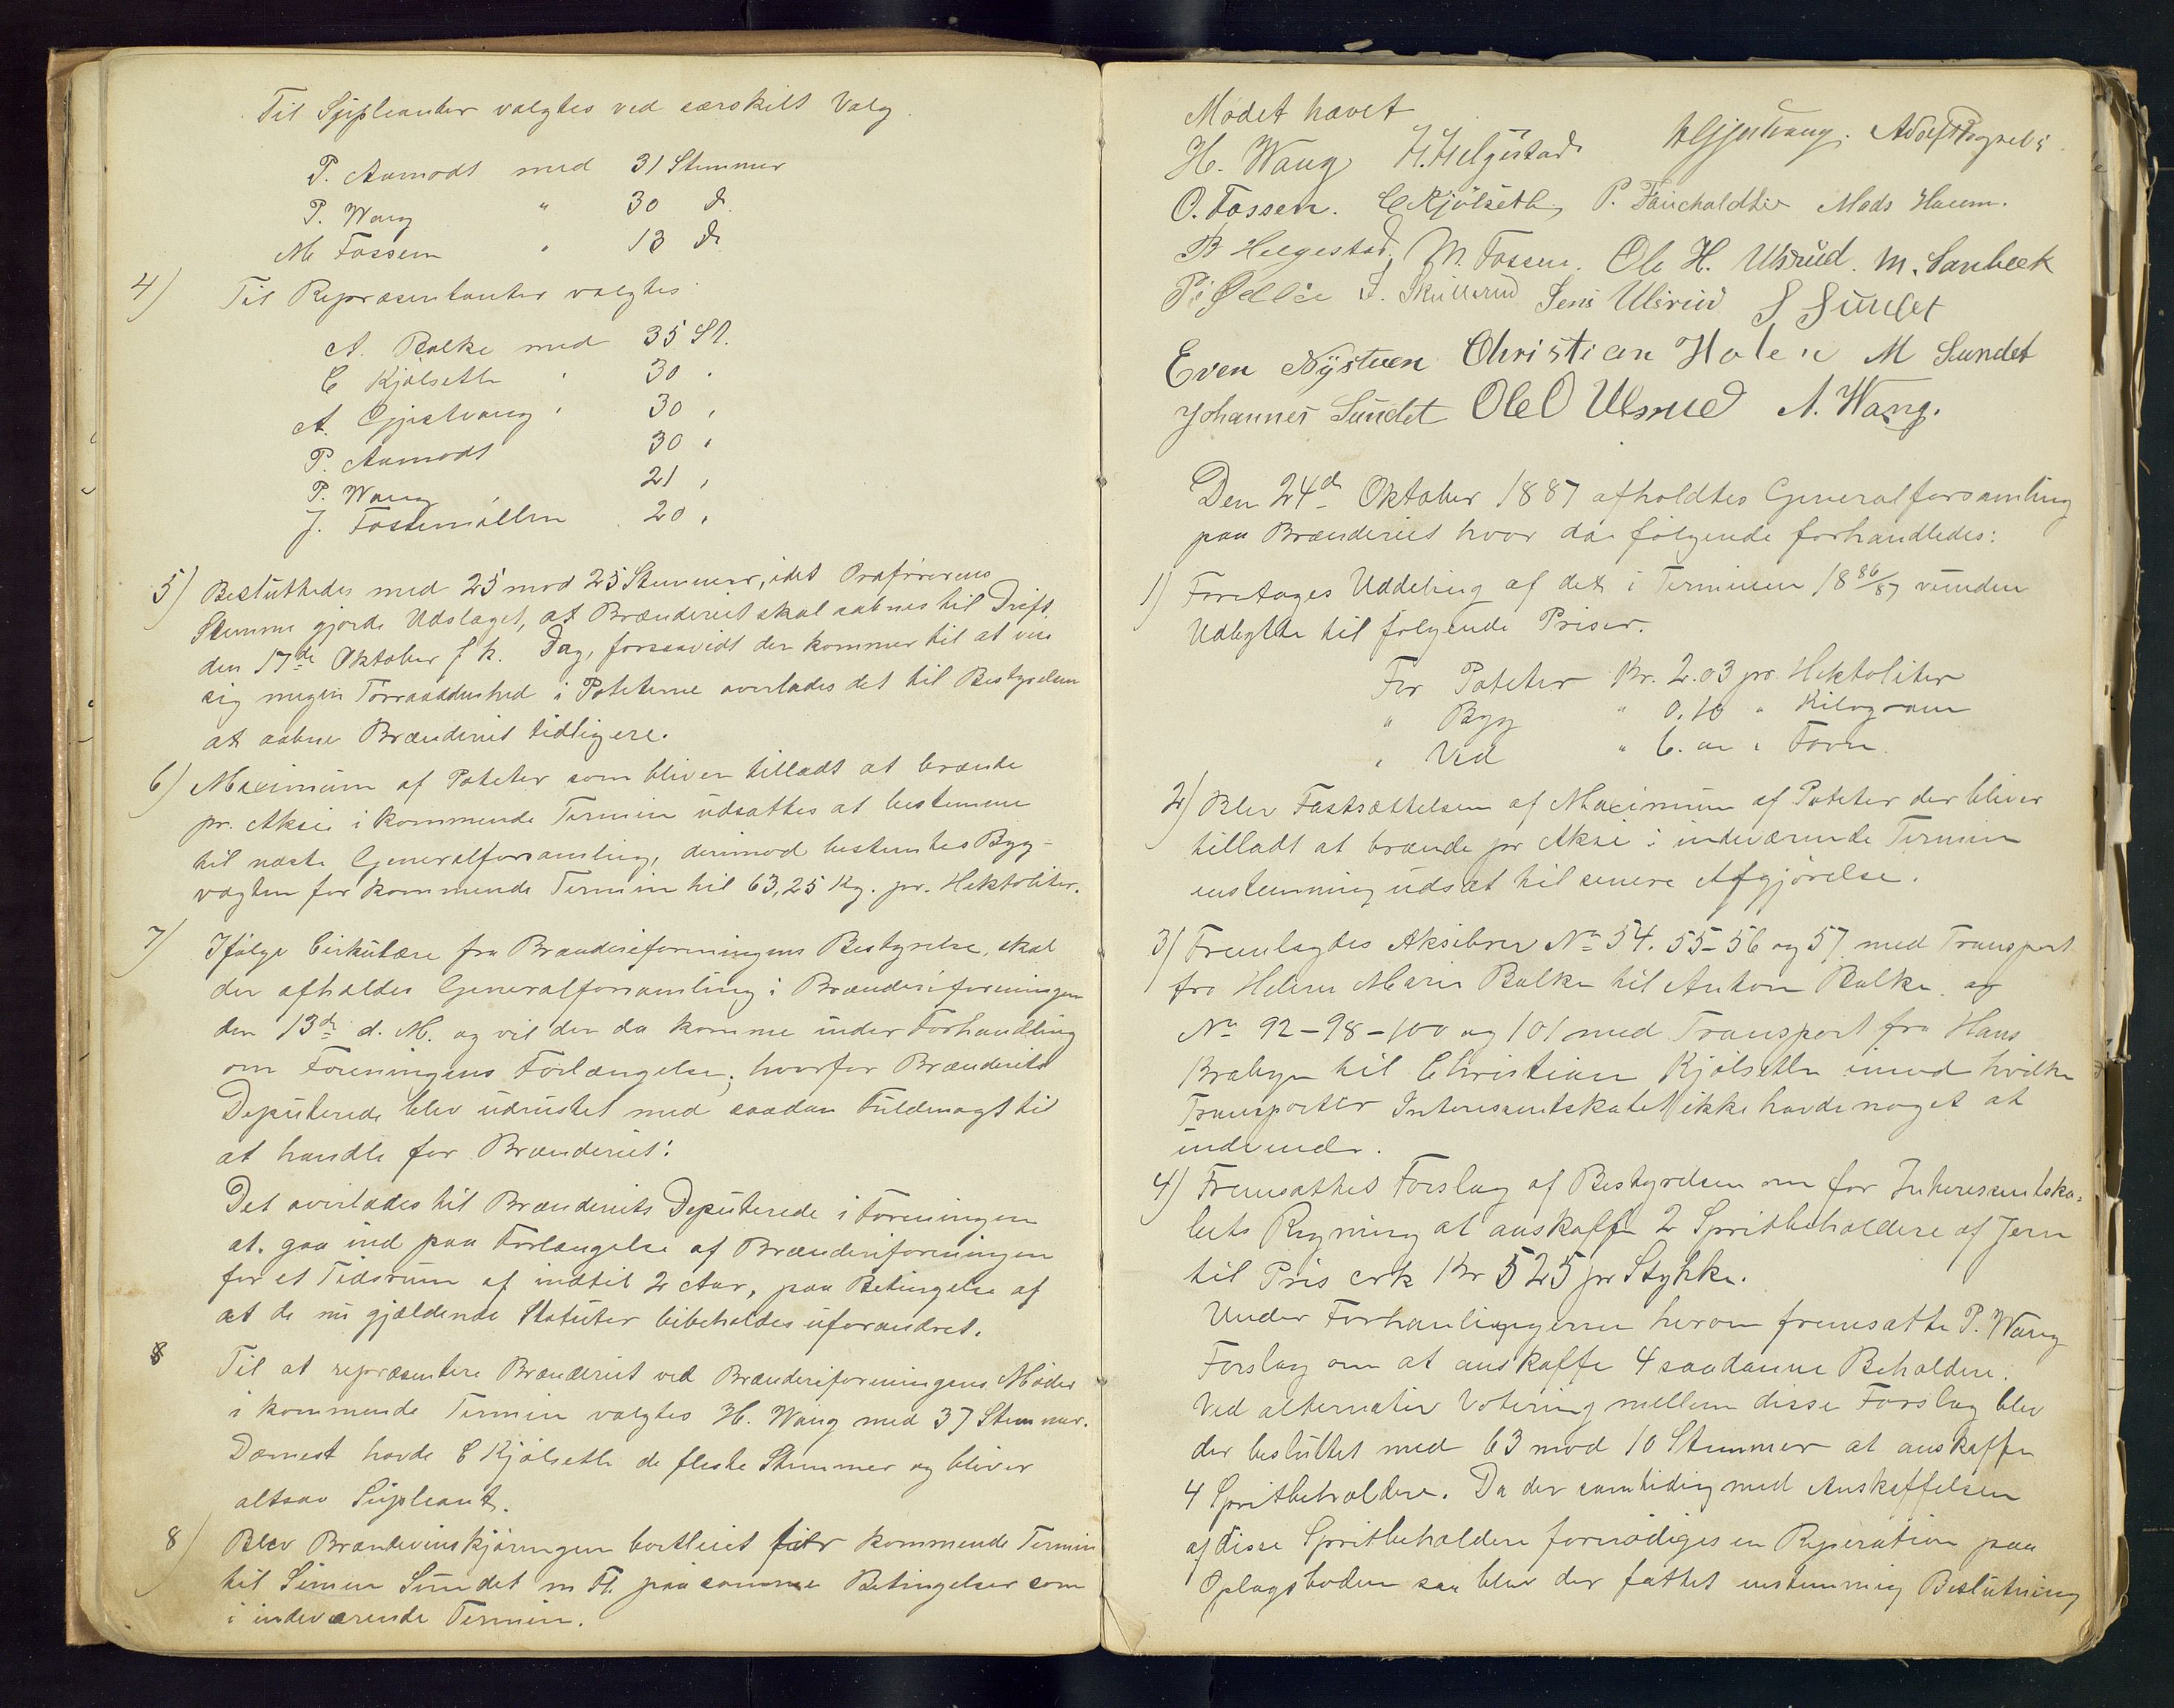 Til Supleanter valgtes ved særskilt Valg
P. Aamodt med 31 Stemmer
P. Wang " 30 do
M Fossen " 13 do
4) Til Repræsentanter valgtes
A. Balke med 35 St.
C Kjølseth " 30 "
A. Gjestvang " 30 "
P. Aamodt 30 "
P. Wang 21 "
J. Fossemøllen 20 "
5) Besluttedes med 25 mod 25 Stemmer, idet Ordførerens
Stemme gjorde Udslaget, at Brænderiet skal aabnes til Drift
den 17de Oktober f k. Dog, forsaavidt der kommer til at vise
sig nogen Forraaddenhed i Poteterne overlades det til Bestyrelsen
at aabne Brænderiet tidligere.
6) Maximum af Poteter som bliver tilladt at brænde
pr. Aksie i kommende Termin udsattes at bestemme
til næste Generalforsamling, derimod bestemtes Byg-
vægten for kommende Termin til 63,25 Kg. pr. Hektoliter.
7) Ifølge Cirkulære fra Brænderiforeningens Bestyrelse, skal
der afholdes Generalforsamling i Brænderiforeningen
den 13de d. M. og vil der da komme under Forhandling
om Foreningens Forlængelse; hvorfor Brænderiets
Deputerede blev udrustet med saadan Fuldmagt til
at handle for Brænderiet:
Det overlades til Brænderiets Deputerede i Foreningen
at gaa ind paa Forlængelse af Brænderiforeningen
for et Tidsrum af indtil 2 Aar, paa Betingelse af
at de nu gjældende Statuter bibeholdes uforandret.
8 Til at repræsentere Brænderiet ved Brænderiforeningens Møder
i kommende Termin valgtes H. Wang med 37 Stemmer.
Dernest havde C Kjølseth de fleste Stemmer og bliver
altsaa Supleant.
8) Blev Brændevinskjøringen bortleiet for kommende Termin
til Simen Sundet m Fl. paa samme Betingelser som
i indeværende Termin.
Mødet hævet
H. Wang H. Helgestad A Gjestvang.
O. Fossen. C Kjölseth P. Mads Hoem.
B Helgestad. M. Fossen. Ole H. Ulsrud. M. Sanbeck
P. J. Skullerud Jens Ulsrud S Sundet
Even Nÿstuen Christian Holen M Sundet
Johannes Sundet Ole O Ulsrud A. Wang.
Den 24de Oktober 1887 afholdtes Generalforsamling
paa Brænderiet hvor da følgende forhandledes:
1) Foretages Uddeling af det i Terminen 1886/87 vundne
Udbytte til følgende Priser.
For Poteter Kr. 2.03 pr. Hektoliter
" Byg " 0.10 " Kilogram
" Ved " 6. oo " Favn
2) Blev Fastsættelsen af Maximum af Poteter der bliver
tilladt at brænde pr Aksie i indeværende Termin
enstemmig udsat til senere Afgjørelse.
3) Fremlagdes Aksiebrev No 54. 55-56 og 57 med Transport
fra Helene Marie Balke til Anton Balke og
No 92-98-100 og 101 med Transport fra Hans
Brabyn til Christian Kjølseth imod hvilke
Transporter Interessentskabet ikke havde noget at
indvende.
4) Fremsattes Forslag af Bestyrelsen om for Interessentska-
bets Regning at anskaffe 2 Spritbeholdere af Jern
til Pris cirk Kr 525 pr Stykke.
Under Forhanlingerne herom fremsatte P. Wang
Forslag om at anskaffe 4 saadanne Beholdere.
Ved alternativ Votering mellem disse Forslag blev
der besluttet med 63 mod 10 Stemmer at anskaffe
4 Spritbeholdere. Da der samtidig med Anskaffelsen
af disse Spritbeholdere fornødiges en Reperation paa
Oplagsboden saa blev der fattet enstemmig Beslutning